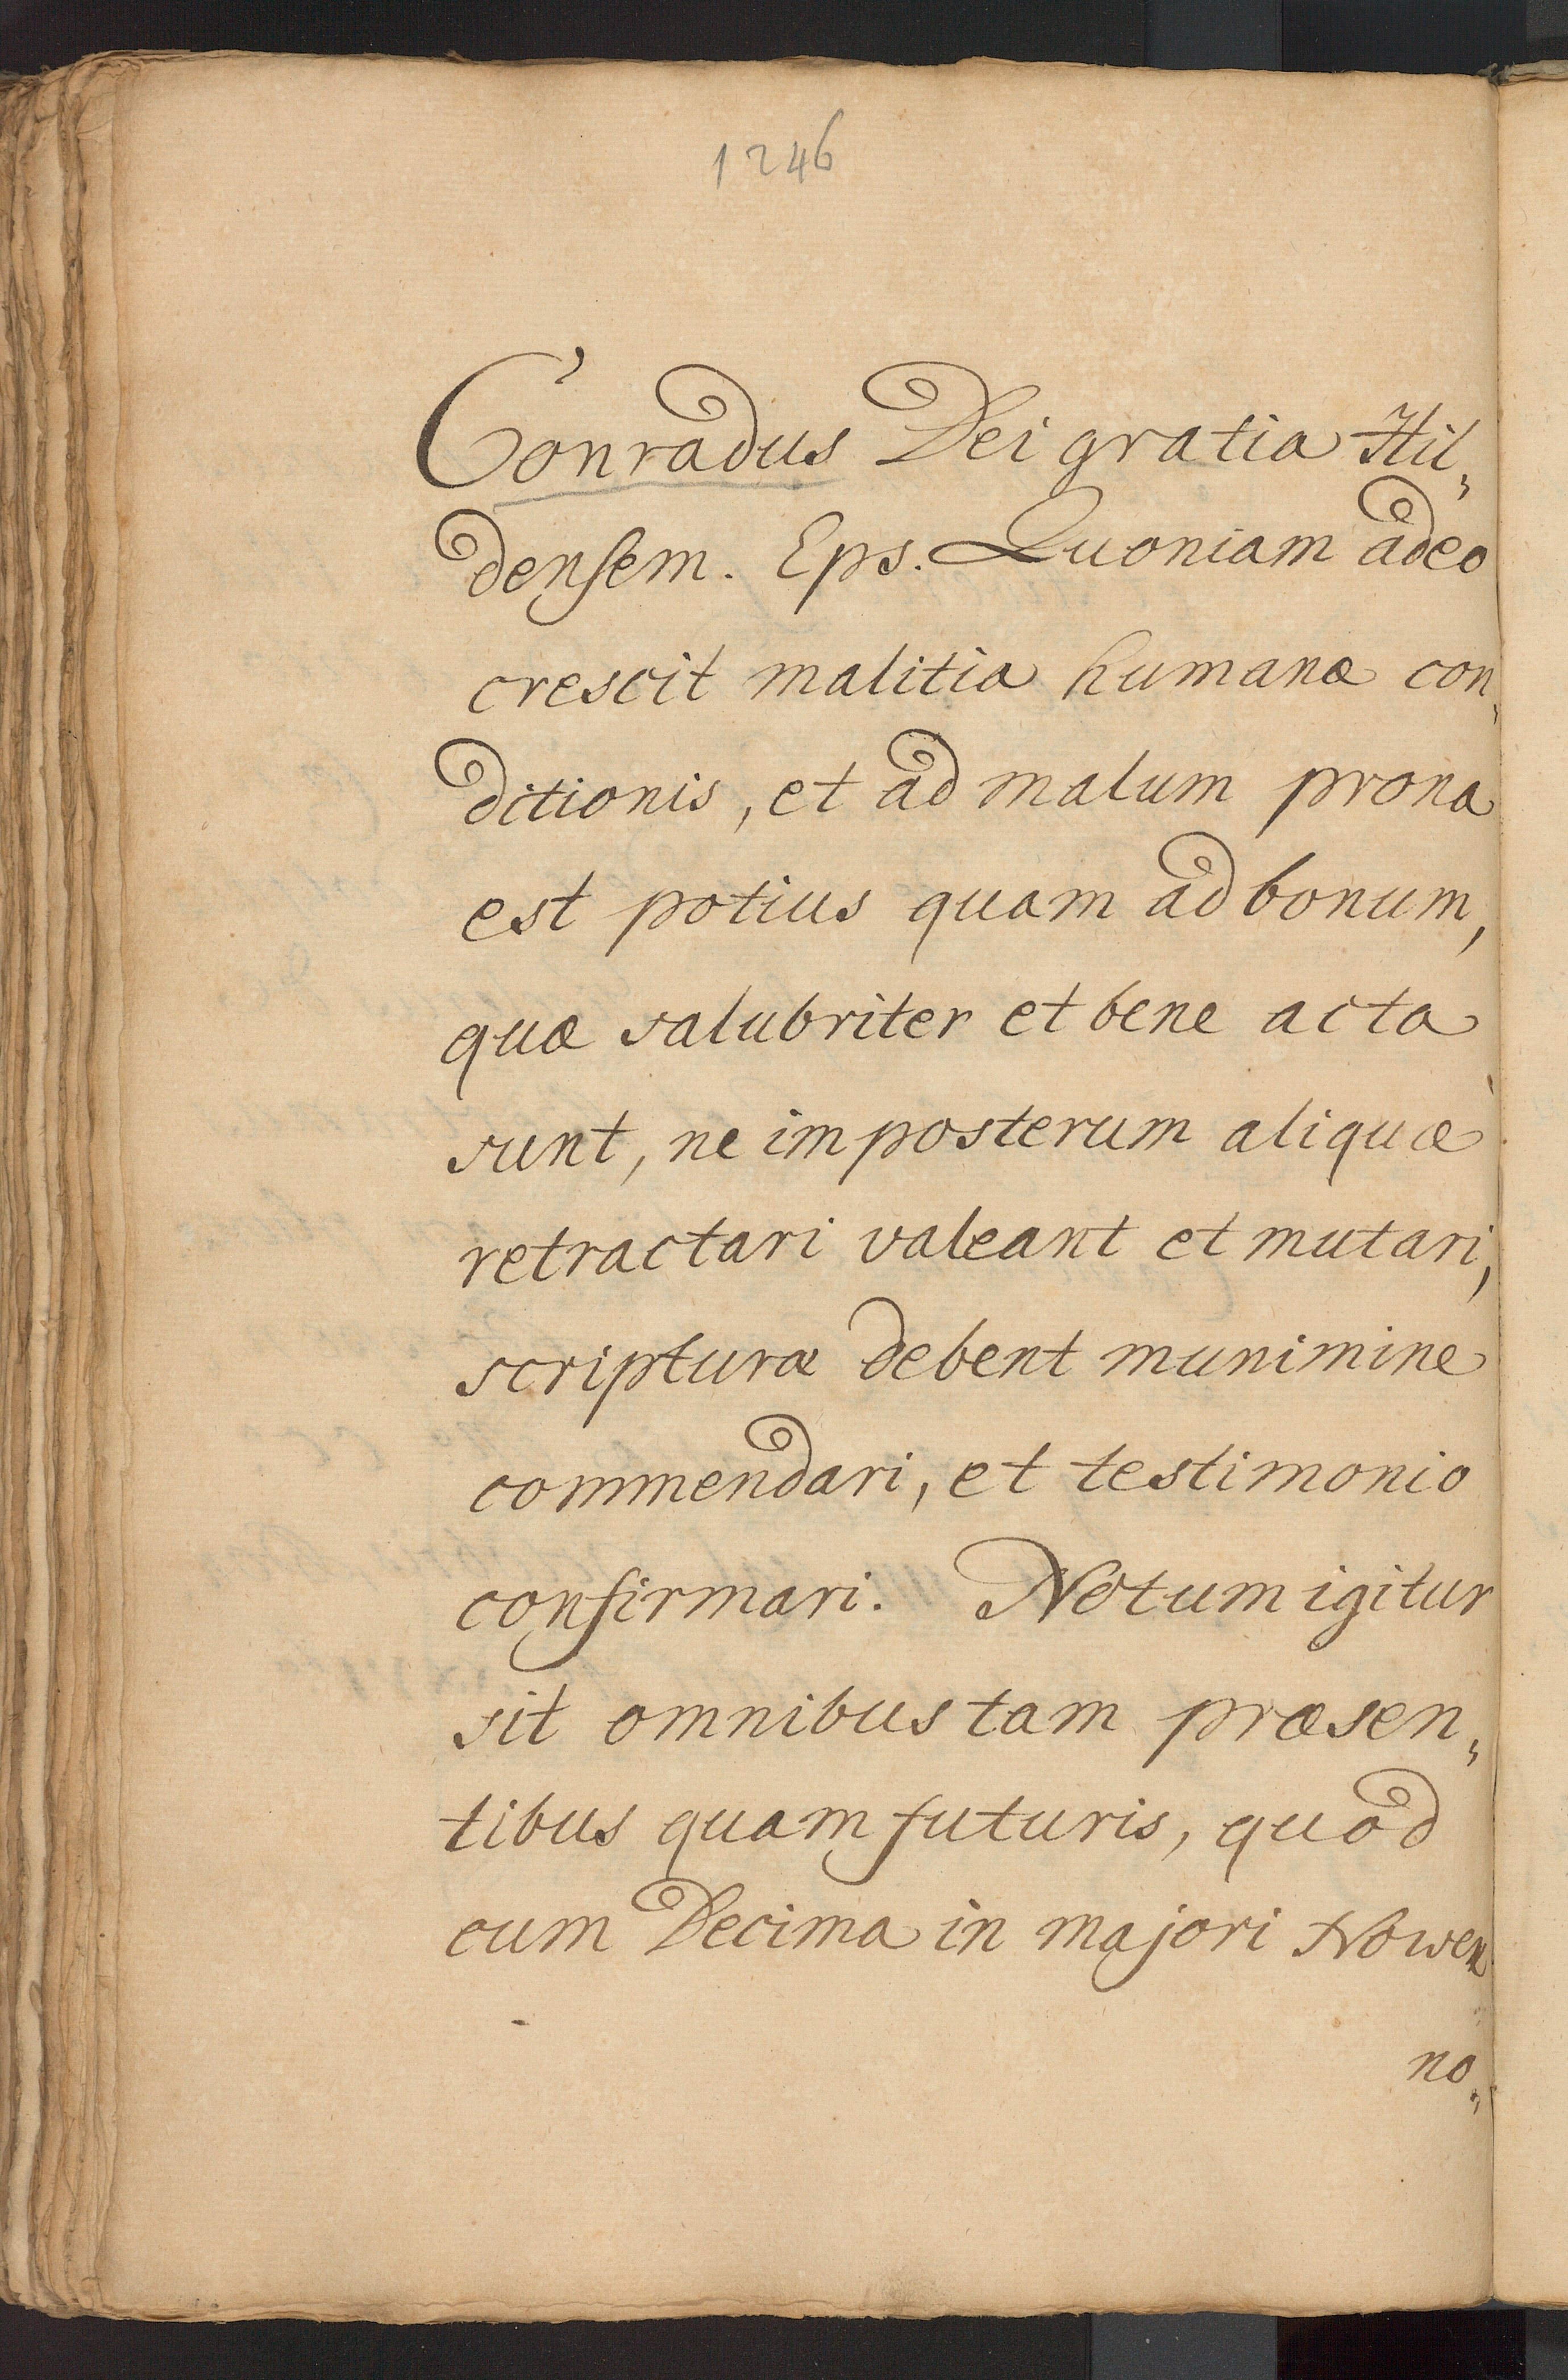 1246
Conradus Dei gratia Hil„
densem. Eps. Quoniam adeo
crescit malitia humanæ con„
ditionis, et ad malum prona
est potius quam ad bonum,
quæ salubriter et bene acta
sunt, ne imposterum aliquæ
retractari valeant et mutari,
scripturæ debent munimine
commendari, et testimonio
confirmari. Notum igitur
sit omnibus tam præsen„
tibus quam futuris, quod
cum Decima in majori Nowen
no„